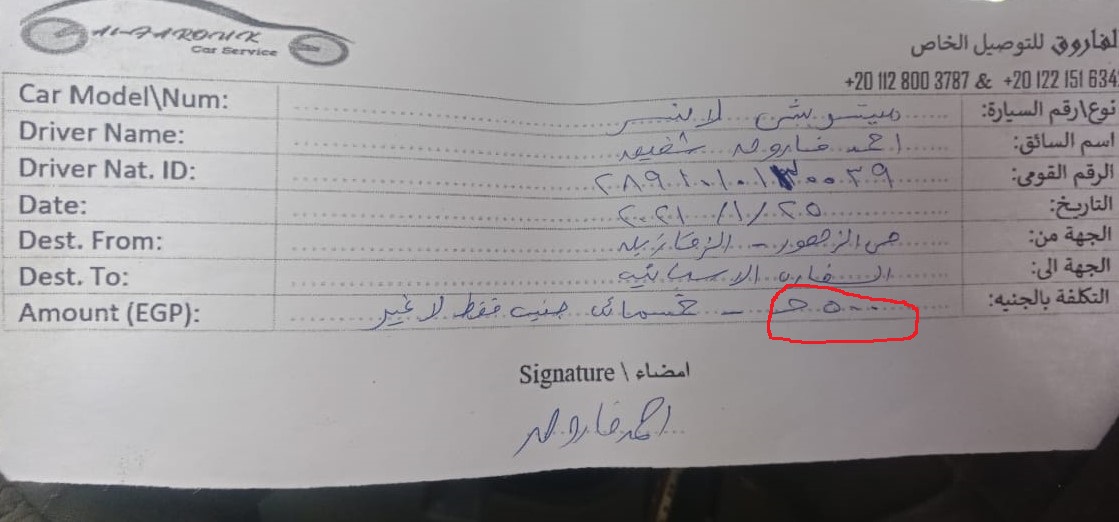 AL-FAROUK
Car Service
الفاروق للتوصيل الخاص
+20 112 800 3787 & +20 122 151 634
Car Model\Num: ميتسوبشى لانسر نوع\رقم السيارة:
Driver Name: احمد فاروق شفيق اسم السائق:
Driver Nat. ID: الرقم القومى:
Date: ٢٠٢١/١/٢٥ التاريخ:
Dest. From: حى الزهور - الزقازيق الجهة من:
Dest. To: السفارة الاسبانية الجهة الى:
Amount (EGP): ٥٠٠ جـ - خمسمائة جنيه فقط لا غير التكلفة بالجنيه:
Signature \ امضاء
احمد فاروق